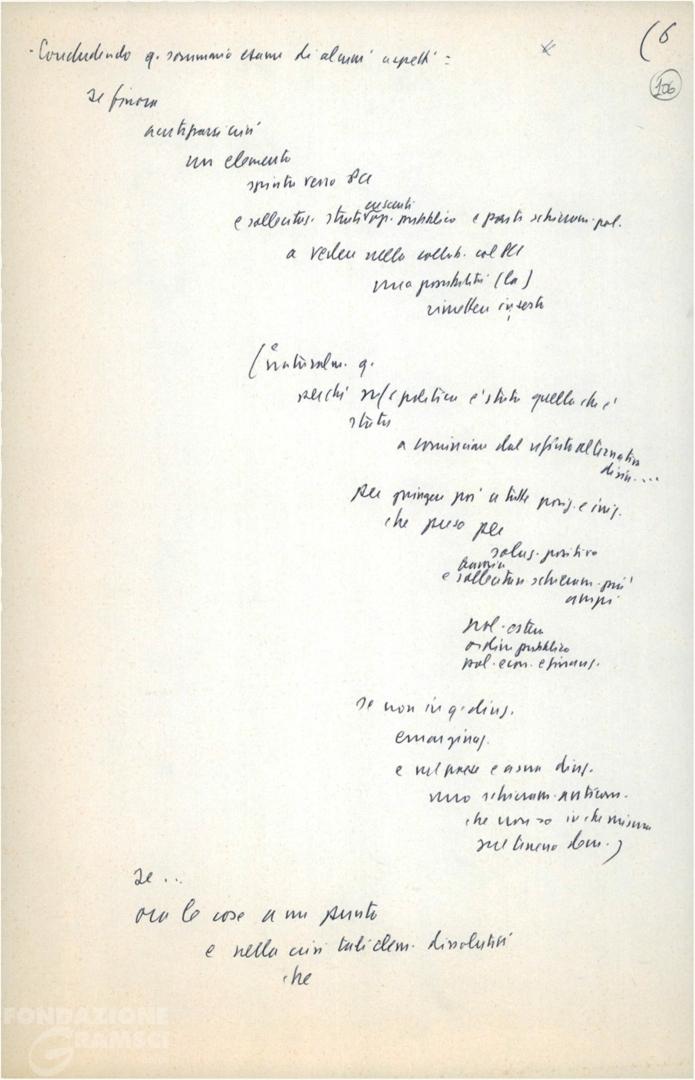 (6
106
- Concludendo q. sommario esame di alcuni aspetti =
se finora
un elemento
spinto verso PCI
crescenti
e sollecitaz. strati op. pubblica e parti schieram. pol.
a vedere nella collab. col PCI
una possibilità (la)
rimettere in sesto
(naturalm. q.
perché ns/ politica è stata quella che è
stata
a cominciare dal rifiuto alternativa
per giungere poi a tutte posiz. e iniz.
che preso per
soluz. positiva
e sollecitare schieram. più
ampi
pol. estera
ordine pubblico
pol. econ. e finanz.
se non in q. direz.
emarginaz.
e nel paese e assai diff.
uno schieram. anticom.
che non so in che misura
sul terreno dem.)
se ..
ora le cose a un punto
e nella crisi tali elem. dissolutivi
che
FONDAZIONE
GRAMSCI